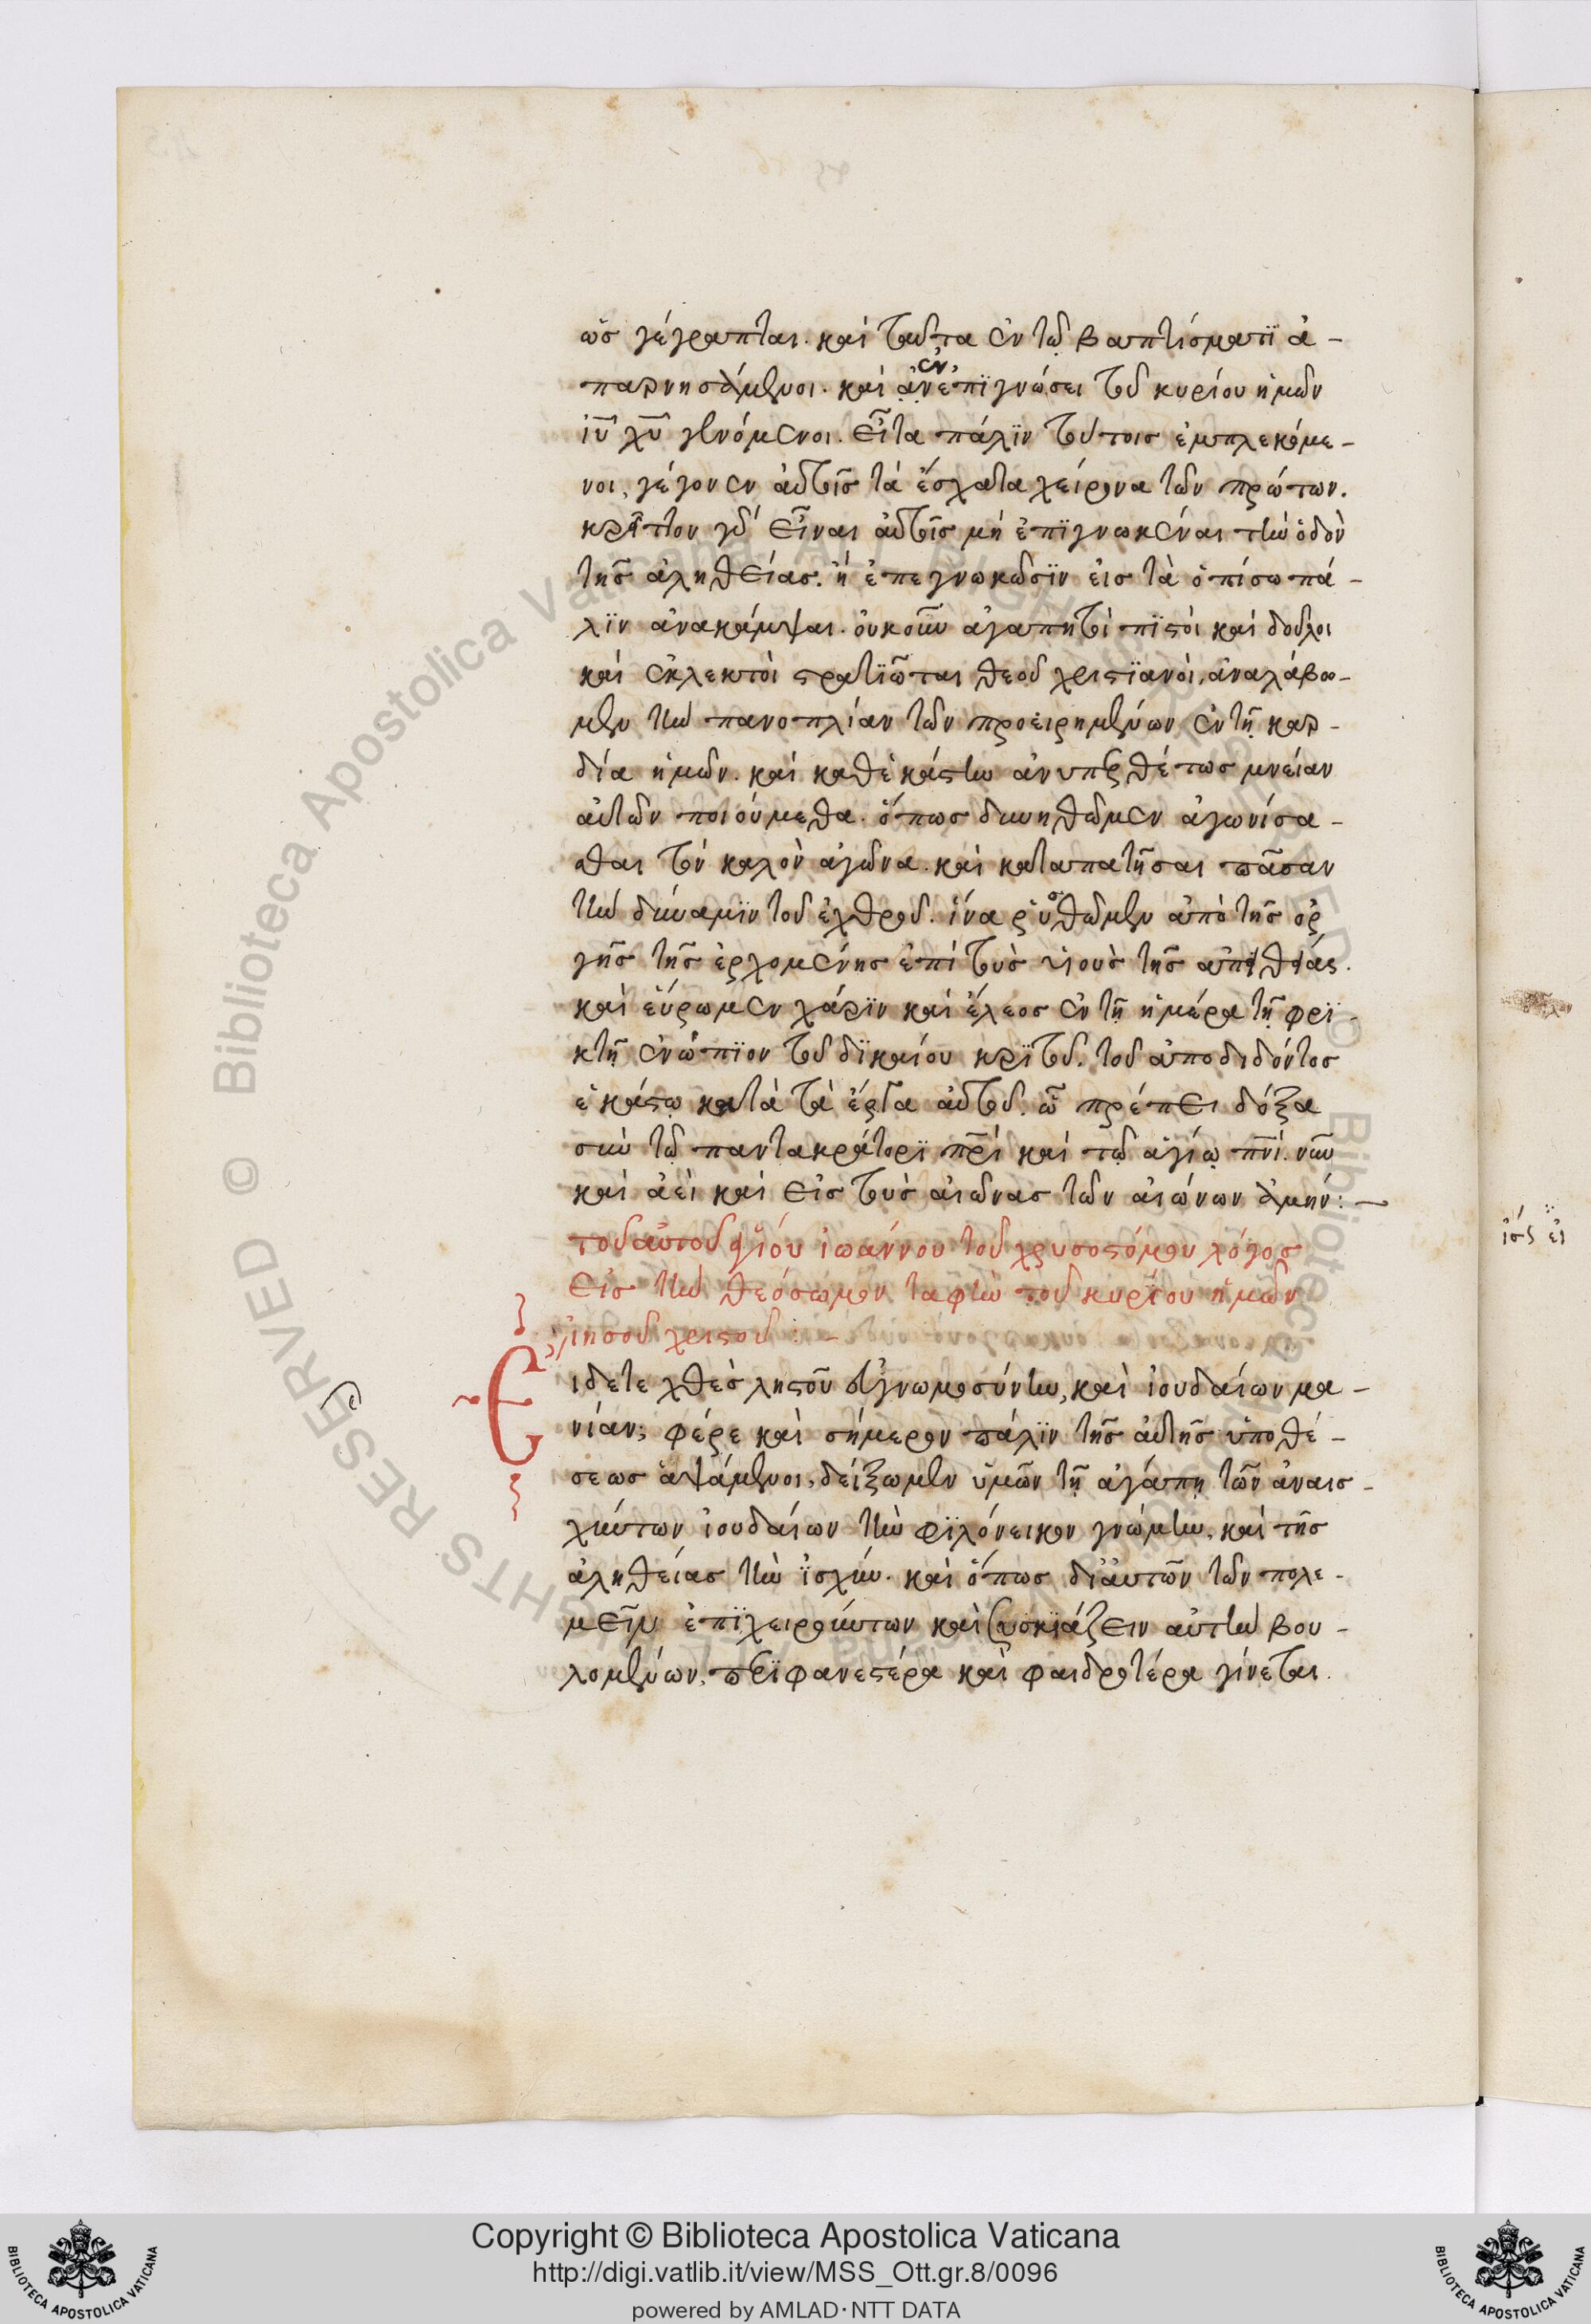 ὡς γέγραπται. καὶ ταῦτα ἐν τῷ βαπτίσματϊ ἀ-
παρνησάμενοι. καὶ ἀνεπϊγνώσει τοῦ κυρίου ἡμῶν
ἐν
ἰῦ χῦ γενόμενοι. εἶτα πάλϊν τούτοις ἐμπλεκόμε-
νοι, γέγονεν αὐτοῖς τὰ ἔσχατα χείρονα τῶν πρώτων.
κρεῖττον γὰρ εἶναι αὐτοῖς μὴ ἐπϊγνωκέναι τὴν ὁδὸν
τῆς ἀληθείας. ἢ ἐπεγνωκῶσϊν εἰς τὰ ὀπίσω πά-
λϊν ἀνακάμψαι. οὐκοῦν ἀγαπητοὶ πϊστοὶ καὶ δοῦλοι
καὶ ἐκλεκτοὶ στρατϊῶται θεοῦ χριστϊανοὶ, ἀναλάβω-
μεν τὴν πανοπλίαν τῶν προειρημένων ἐν τῇ καρ-
δία ἡμῶν. καὶ καθεκάστην ἀνυπερθέτως μνείαν
αὐτῶν ποιούμεθα. ὅπως δυνηθῶμεν ἀγωνίσα-
σθαι τὸν καλὸν ἀγῶνα. καὶ καταπατῆσαι πᾶσαν
τὴν δύναμϊν τοῦ ἐχθροῦ. ἵνα ῥυσθῶμεν ἀπὸ τῆς ὀρ
γῆς τῆς ἐρχομένης ἐπὶ τοὺς υἱοὺς τῆς ἀπειθείας.
καὶ εὕρωμεν χάρϊν καὶ ἔλεος ἐν τῇ ἡμέρα τῇ φρϊ-
κτῇ ἐνώπϊον τοῦ δϊκαίου κρϊτοῦ. τοῦ ἀποδιδόντος
ἑκάστῳ κατὰ τὰ ἔργα αὐτοῦ. ᾧ πρέπει δόξα
σὺν τῷ παντακράτορϊ πρὶ καὶ τῷ ἁγίῳ πνὶ. νῦν
καὶ ἀεὶ καὶ εἰς τοὺς αἰῶνας τῶν αἰώνων ἀμήν:-
τοῦ αὐτοῦ ἁγίου ἰωάννου τοῦ χρυσοστόμου λόγος
εἰς τὴν θεόσωμον ταφὴν τοῦ κυρίου ἡμῶν
ἰησοῦ χριστοῦ:-
Εἴδετε χθὲς ληστοῦ εὐγνωμοσύνην, καὶ ἰουδαίων μα-
νίαν; φέρε καὶ σήμερον πάλϊν τῆς αὐτῆς ὑποθέ-
σεως ἁψάμενοι, δείξωμεν ὑμῶν τῇ ἀγάπῃ τῶν ἀναισ-
χύντων ἰουδαίων τὴν φϊλόνεικον γνώμην, καὶ τῆς
ἀληθείας τὴν ἰσχύν. καὶ ὅπως δι αὐτῶν τῶν πολε-
μεῖν ἐπϊχειρούντων καὶ συσκϊάζειν αὐτὴν βου-
λομένων, περϊφανεστέρα καὶ φαιδροτέρα γίνεται.
Copyright © Biblioteca Apostolica Vaticana
http://digi.vatlib.it/view/MSS_Ott.gr.8/0096
powered by AMLAD·NTT DATA